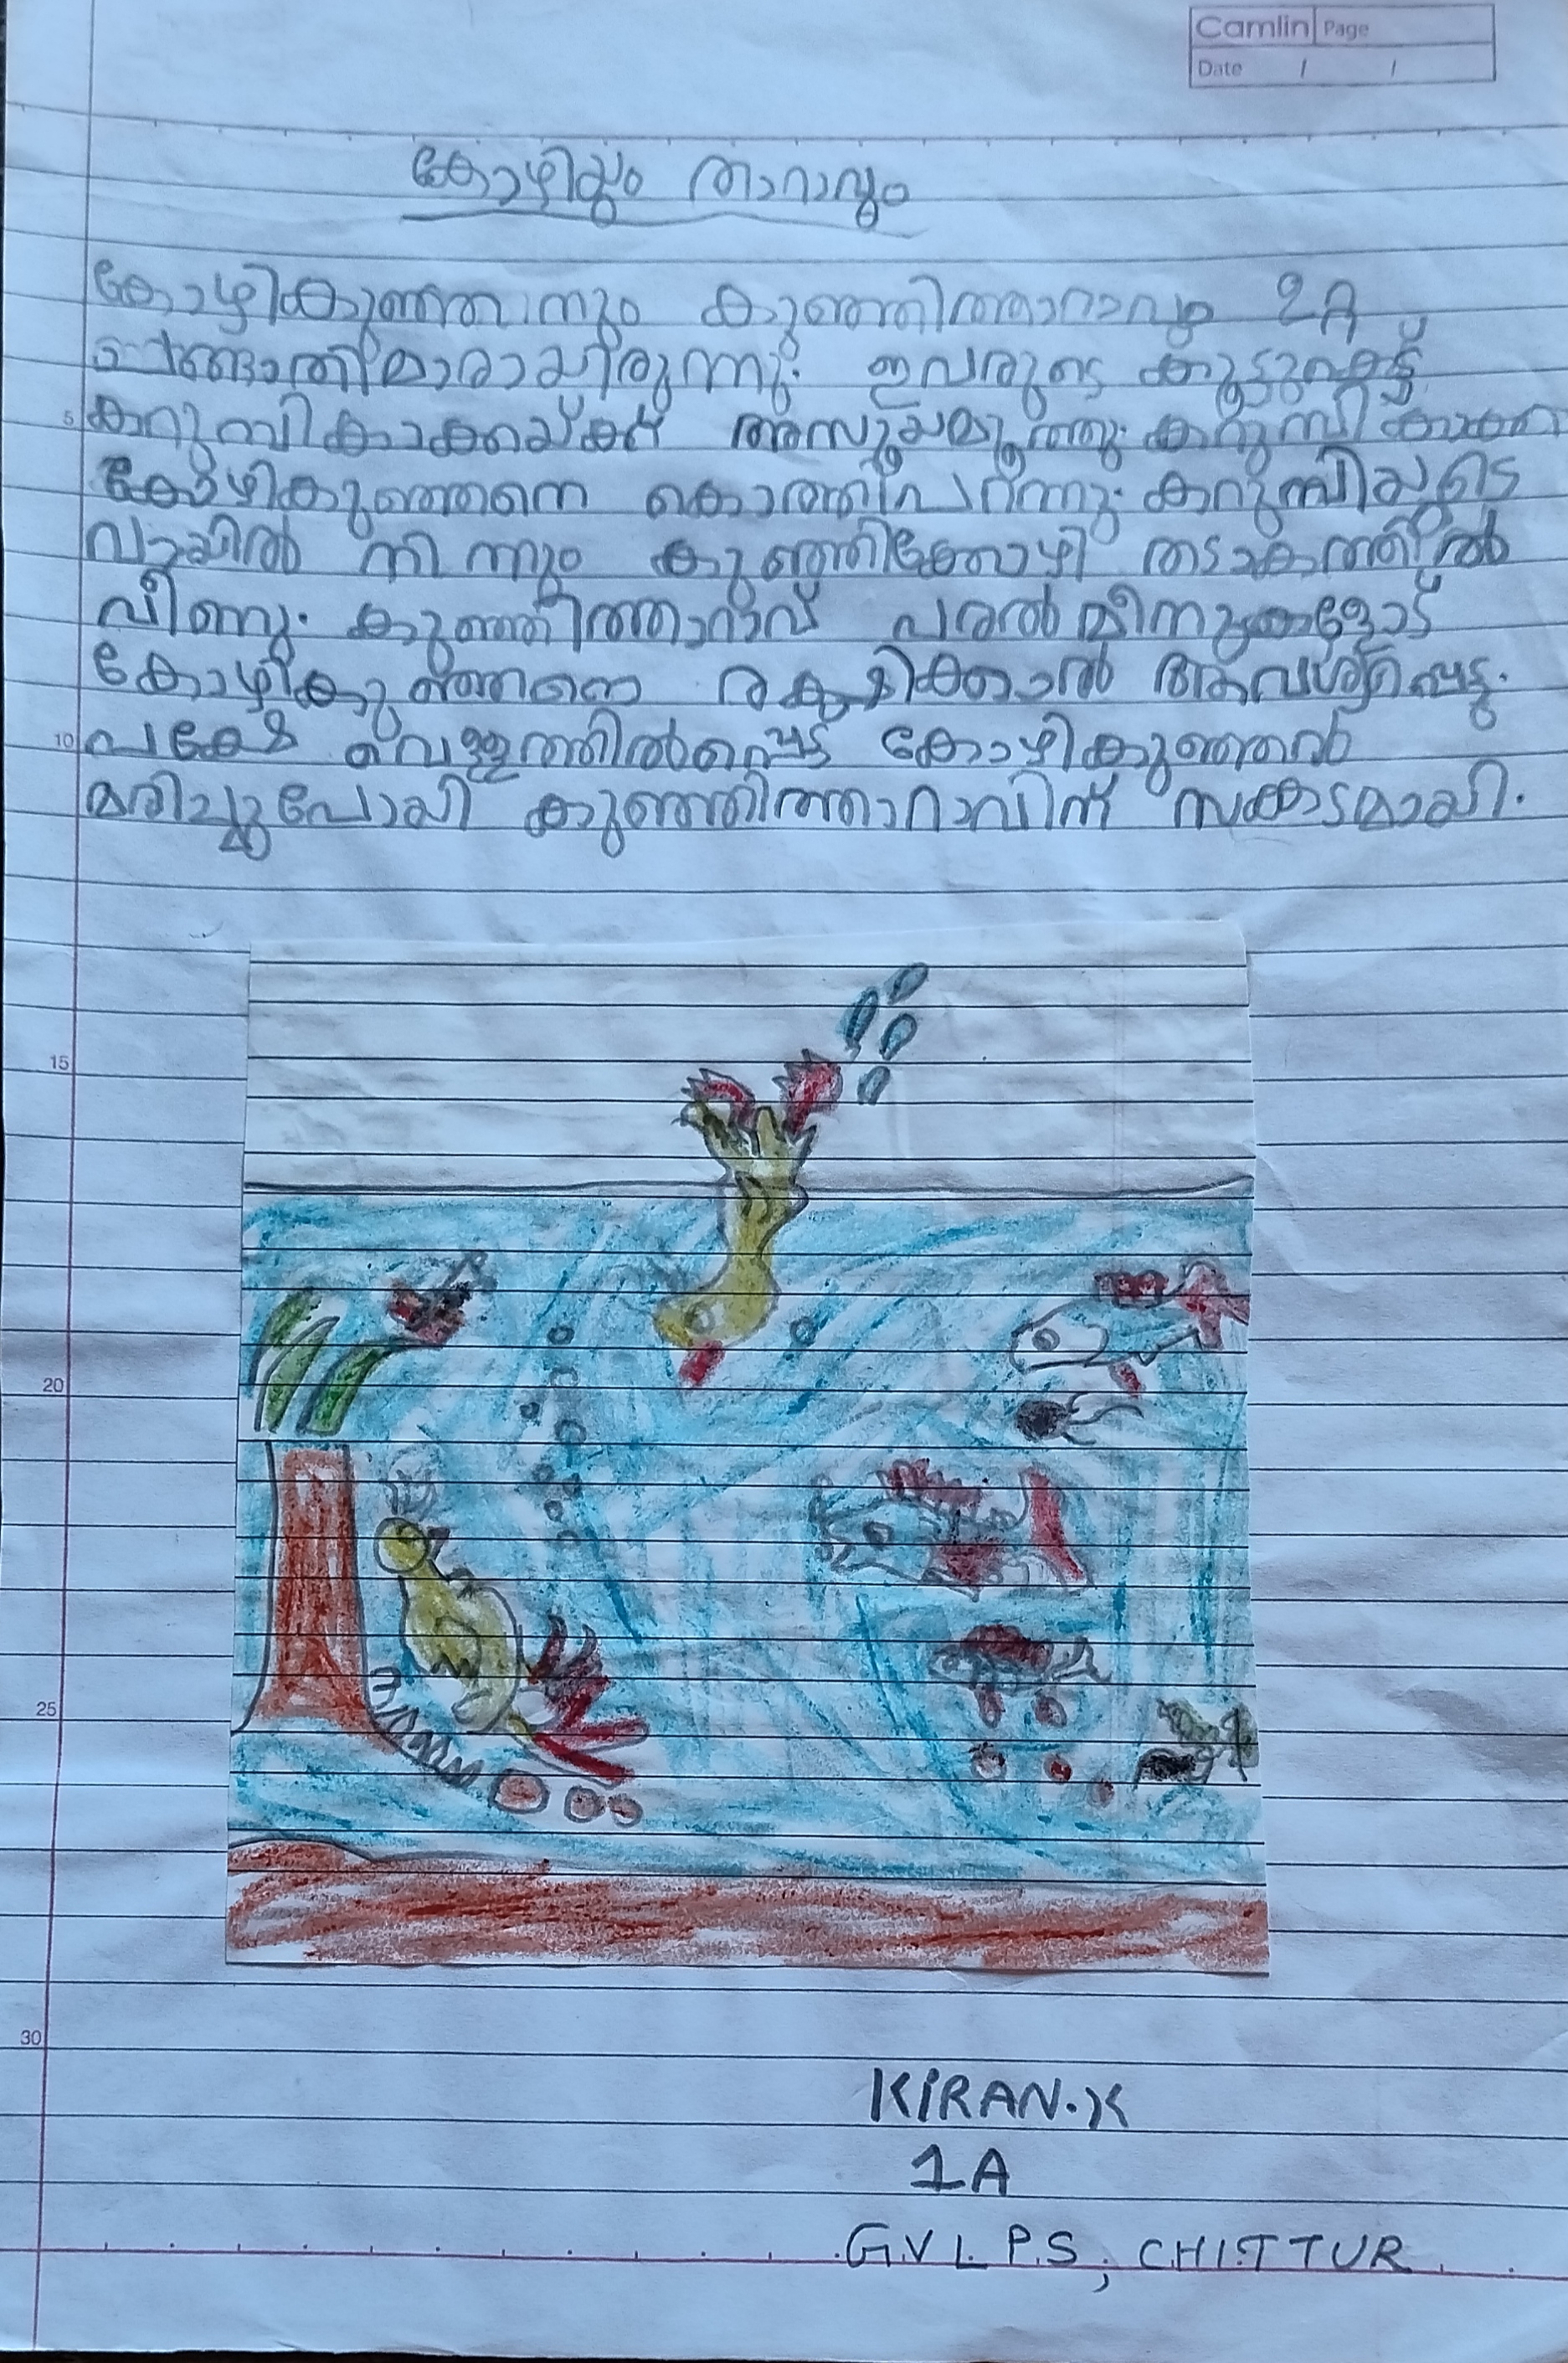 Camlin Page
Date / /
കോഴിയും താറാവും
കോഴികുഞ്ഞനും കുഞ്ഞിത്താറാവും
ചങ്ങാതിമാരായിരുന്നു. ഇവരുടെ കൂട്ടുകെട്ട്
5 കറുമ്പികാക്കയ്ക്ക് അസൂയമൂത്തു. കറുമ്പികാക്ക
കോഴികുഞ്ഞനെ കൊത്തിപറന്നു. കറുമ്പിയുടെ
വായിൽ നിന്നും കുഞ്ഞിക്കോഴി തടാകത്തിൽ
വീണു. കുഞ്ഞിത്താറാവ് പരൽമീനുകളോട്
കോഴികുഞ്ഞനെ രക്ഷിക്കാൻ ആവശ്യപ്പെട്ടു.
10 പക്ഷേ വെള്ളത്തിൽപ്പെട്ട കോഴികുഞ്ഞൻ
മരിച്ചുപോയി കുഞ്ഞിത്താറാവിന് സങ്കടമായി.
15
20
25
30
KIRAN.K
1A
G.V.L.P.S, CHITTUR